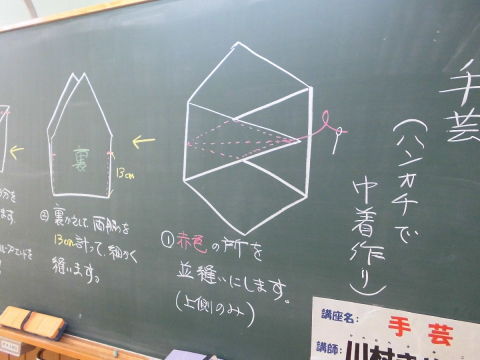 手芸
(ハンカチで
巾着作り)
① 赤色の所を
並縫いにします。
(上側のみ)
裏
13cm
② 裏がえして両脇を
13cm計って、細かく
縫います。
分を
ます。
講座名: 手芸
講師: 川村